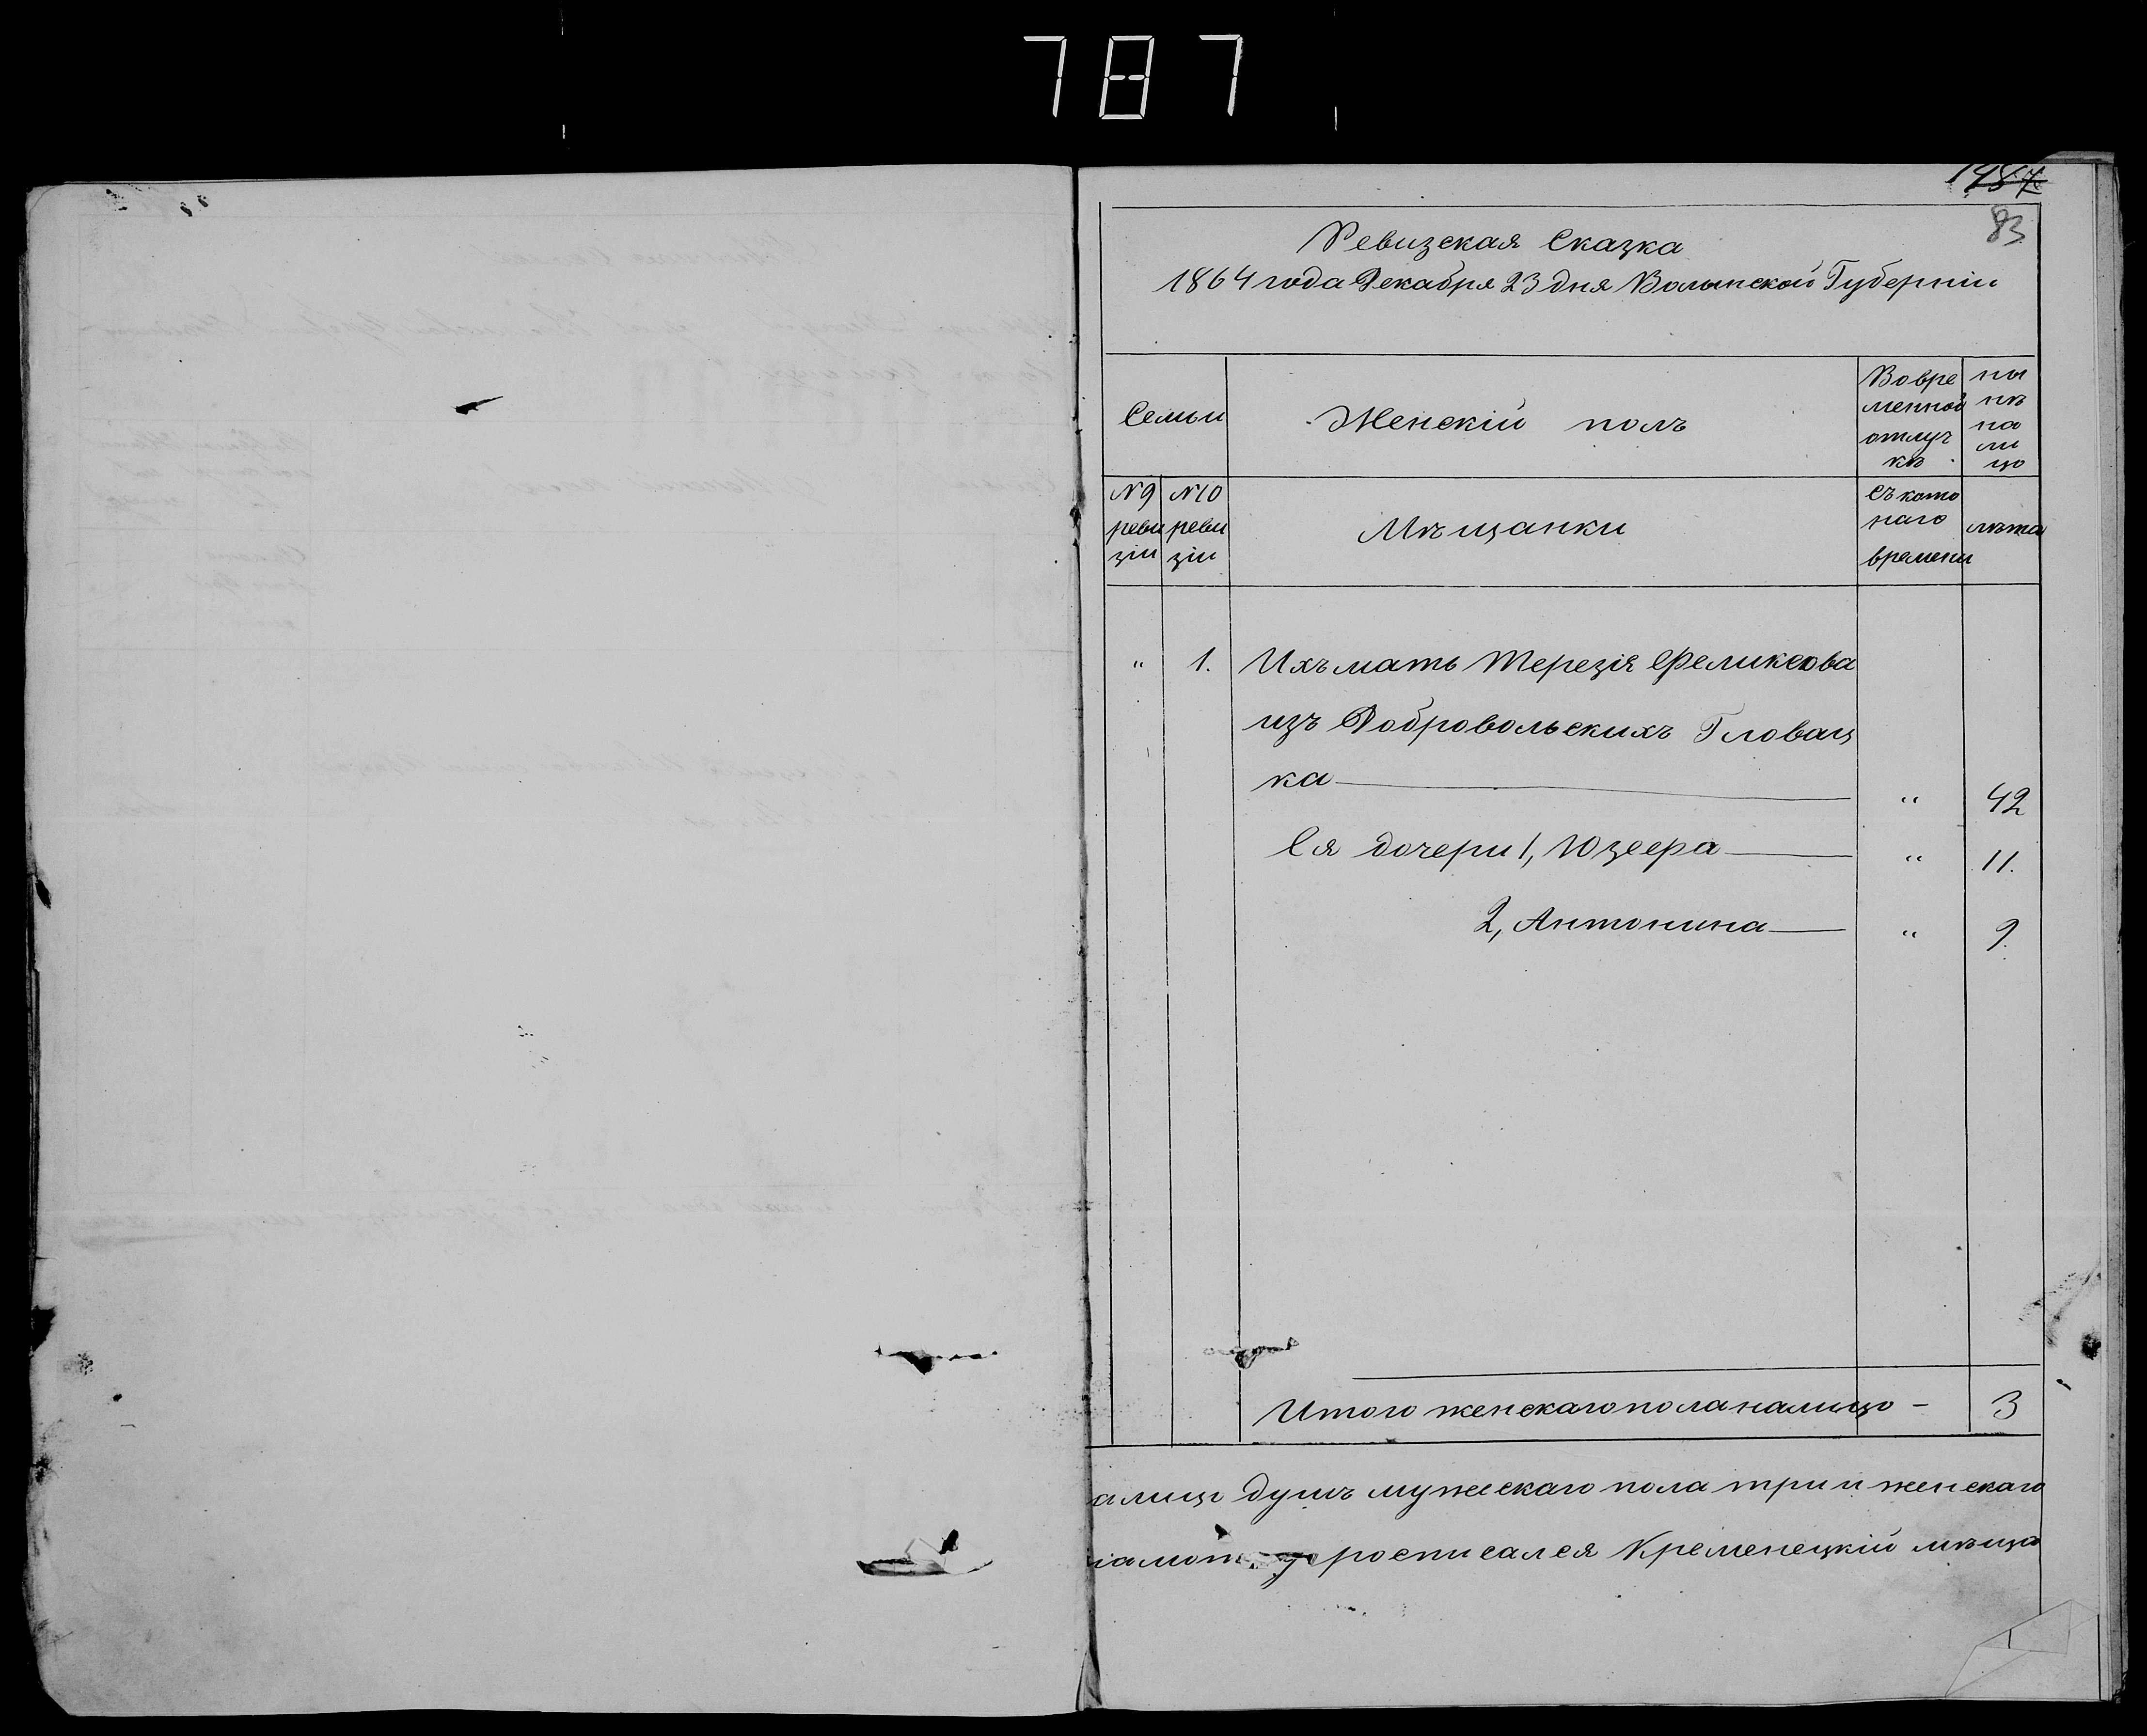 787
1987
83
Ревизская Сказка
1864 года Декабря 23 дня Волынской Губерніи
Семьи
Женскій полъ
Вовре
менной
отлуч
кѣ
ны
нѣ
на
ли
цо
№ 9
реви
зіи
№ 10
реви
зіи
Мѣщанки
Съ кото
раго
времени
лѣта
" 1. Ихъ мать Терезія Феликсова
изъ Добровольскихъ Гловац
ка " 42
Ея дочери 1, Юзефа " 11.
2, Антонина " 9.
Итого женскаго пола налицо - 3
алицо душъ мужескаго пола три и женскаго
росписался Кременецкій мѣща